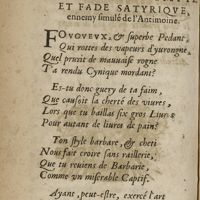 ET FADE SATYRIQUE,
ennemy simulé de l'Antimoine.
FOugueux, & superbe Pedant,
Qui rottes des vapeurs d'yurongne,
Quel prurit de mauuaise rogne
T'a rendu Cynique mordant?
Es-tu donc guery de ta faim,
Que causoit la cherté des viures,
Lors que tu baillas six gros Liures
Pour autant de liures de pain?
Ton style barbare, & cheti
Nous fait croire sans raillerie,
Que tu reuiens de Barbarie,
Comme vn miserable Captif.
Ayant, peut-estre, exercé l'art